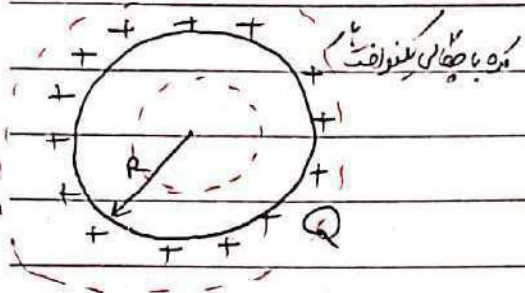 کره با چگالی یکنواخت
R
Q